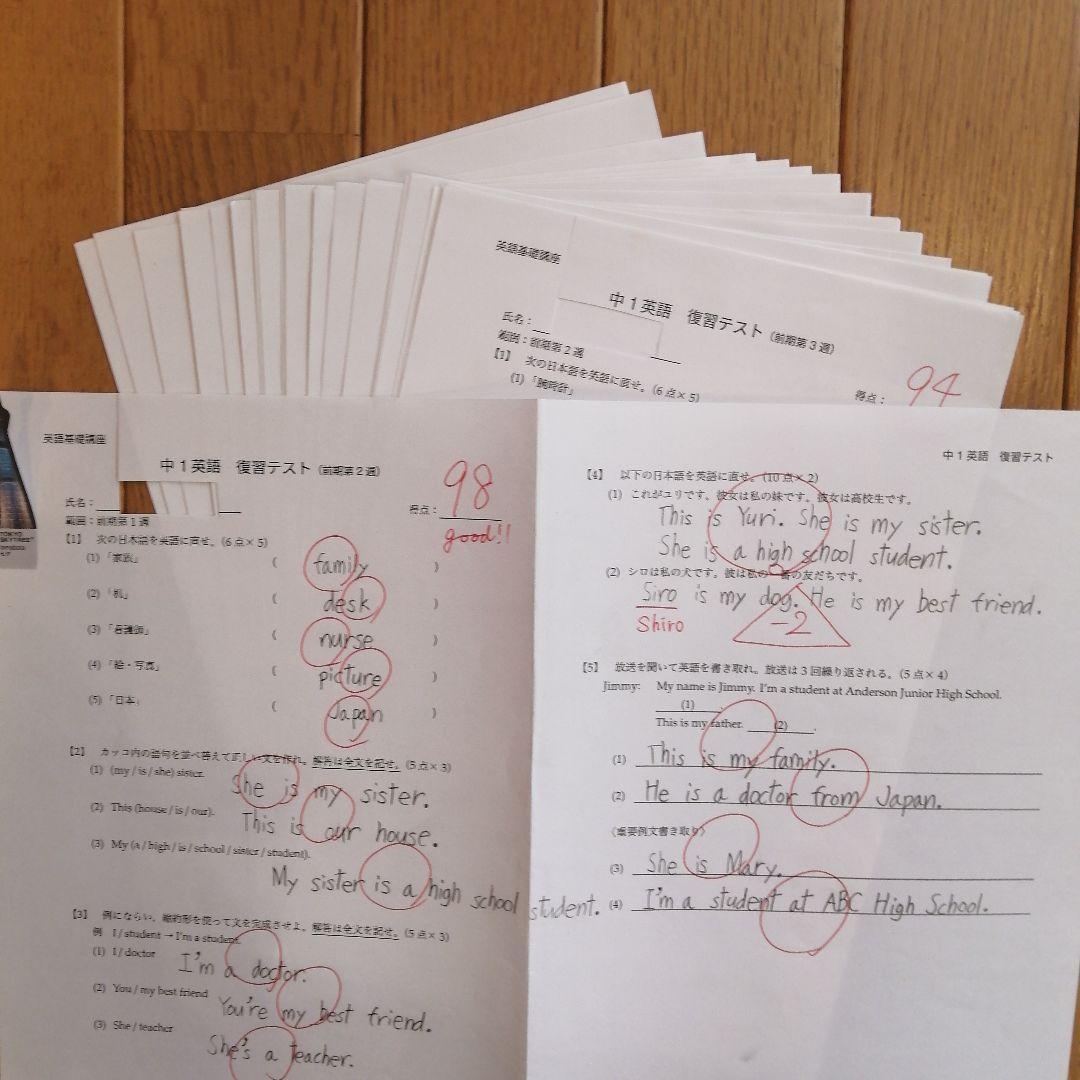 英語基礎講座
中1英語 復習テスト(前期第3週)
氏名:
範囲:前期第2週
得点: 94
【1】 次の日本語を英語に直せ。(6点×5)
(1)「腕時計」
英語基礎講座
中1英語 復習テスト(前期第2週)
氏名:
範囲:前期第1週
得点: 98
good!!
【1】 次の日本語を英語に直せ。(6点×5)
(1)「家族」 ( family )
(2)「机」 ( desk )
(3)「看護師」 ( nurse )
(4)「絵・写真」 ( picture )
(5)「日本」 ( Japan )
【2】 カッコ内の語句を並べ替えて正しい文を作れ。解答は全文を記せ。(5点×3)
(1) (my / is / she) sister.
She is my sister.
(2) This (house / is / our).
This is our house.
(3) My (a / high / is / school / sister / student).
My sister is a high school student.
【3】 例にならい、縮約形を使って文を完成させよ。解答は全文を記せ。(5点×3)
例 I / student → I'm a student.
(1) I / doctor
I'm a doctor.
(2) You / my best friend
You're my best friend.
(3) She / teacher
She's a teacher.
中1英語 復習テスト
【4】 以下の日本語を英語に直せ。(10点×2)
(1) これがユリです。彼女は私の妹です。彼女は高校生です。
This is Yuri. She is my sister.
She is a high school student.
(2) シロは私の犬です。彼は私の一番の友だちです。
Siro is my dog. He is my best friend.
Shiro
-2
【5】 放送を聞いて英語を書き取れ。放送は3回繰り返される。(5点×4)
Jimmy: My name is Jimmy. I'm a student at Anderson Junior High School.
(1)
This is my father. (2) .
(1) This is my family.
(2) He is a doctor from Japan.
〈重要例文書き取り〉
(3) She is Mary.
(4) I'm a student at ABC High School.
TOKYO
SKYTREE